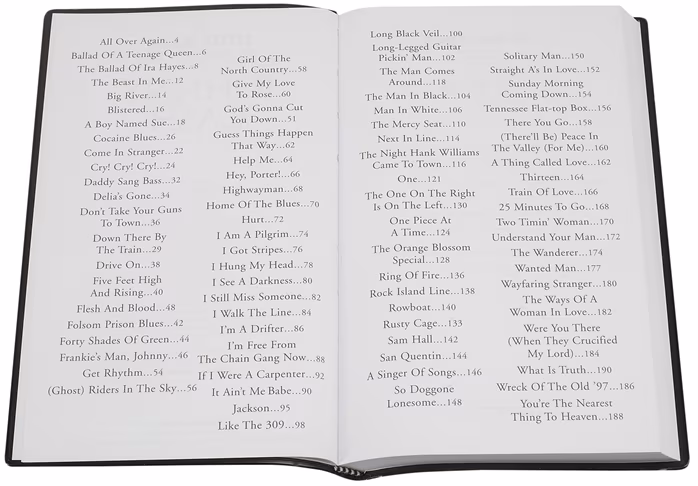 All Over Again...4
Ballad Of A Teenage Queen...6
The Ballad Of Ira Hayes...8
The Beast In Me...12
Big River...14
Blistered...16
A Boy Named Sue...18
Cocaine Blues...26
Come In Stranger...22
Cry! Cry! Cry!...24
Daddy Sang Bass...32
Delia's Gone...34
Don't Take Your Guns
To Town...36
Down There By
The Train...29
Drive On...38
Five Feet High
And Rising...40
Flesh And Blood...48
Folsom Prison Blues...42
Forty Shades Of Green...44
Frankie's Man, Johnny...46
Get Rhythm...54
(Ghost) Riders In The Sky...56
Girl Of The
North Country...58
Give My Love
To Rose...60
God's Gonna Cut
You Down...51
Guess Things Happen
That Way...62
Help Me...64
Hey, Porter!...66
Highwayman...68
Home Of The Blues...70
Hurt...72
I Am A Pilgrim...74
I Got Stripes...76
I Hung My Head...78
I See A Darkness...80
I Still Miss Someone...82
I Walk The Line...84
I'm A Drifter...86
I'm Free From
The Chain Gang Now...88
If I Were A Carpenter...92
It Ain't Me Babe...90
Jackson...95
Like The 309...98
Long Black Veil...100
Long-Legged Guitar
Pickin' Man...102
The Man Comes
Around...118
The Man In Black...104
Man In White...106
The Mercy Seat...110
Next In Line...114
The Night Hank Williams
Came To Town...116
One...121
The One On The Right
Is On The Left...130
One Piece At
A Time...124
The Orange Blossom
Special...128
Ring Of Fire...136
Rock Island Line...138
Rowboat...140
Rusty Cage...133
Sam Hall...142
San Quentin...144
A Singer Of Songs...146
So Doggone
Lonesome...148
Solitary Man...150
Straight A's In Love...152
Sunday Morning
Coming Down...154
Tennessee Flat-top Box...156
There You Go...158
(There'll Be) Peace In
The Valley (For Me)...160
A Thing Called Love...162
Thirteen...164
Train Of Love...166
25 Minutes To Go...168
Two Timin' Woman...170
Understand Your Man...172
The Wanderer...174
Wanted Man...177
Wayfaring Stranger...180
The Ways Of A
Woman In Love...182
Were You There
(When They Crucified
My Lord)...184
What Is Truth...190
Wreck Of The Old '97...186
You're The Nearest
Thing To Heaven...188